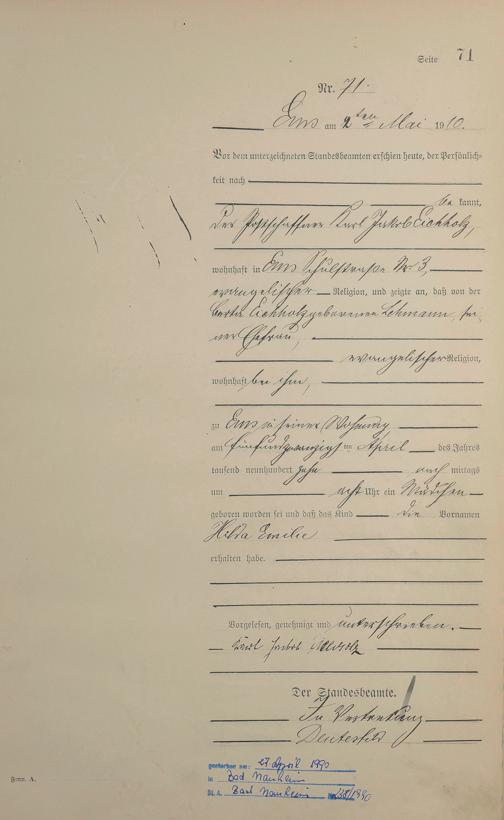 Seite 71
Nr. 71.
Ems am 2ten Mai 1910.
Vor dem unterzeichneten Standesbeamten erschien heute, der Persönlich-
keit nach
be kannt,
der Postschaffner Karl Jakob Eichholz,
wohnhaft in Ems Schulstraße Nr 3,
evangelischer Religion, und zeigte an, daß von der
Berta Eichholz geborenen Lehmann, sei-
ner Ehefrau,
evangelischer Religion,
wohnhaft bei ihm,
zu Ems in seiner Wohnung
am fünfundzwanzigsten April des Jahres
tausend neunhundert zehn nach mittags
um acht Uhr ein Mädchen
geboren worden sei und daß das Kind die Vornamen
Hilda Emilie
erhalten habe.
Vorgelesen, genehmigt und unterschrieben.
Karl Jakob Eichholz
Der Standesbeamte.
In Vertretung
gestorben am: 27. April 1990
in Bad Nauheim
St. A. Bad Nauheim /1990
Form. A.